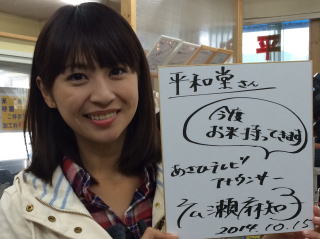 平和堂さん
今度
お米持ってきます
あさひテレビ
アナウンサー
広瀬麻知子
2014.10.15
平